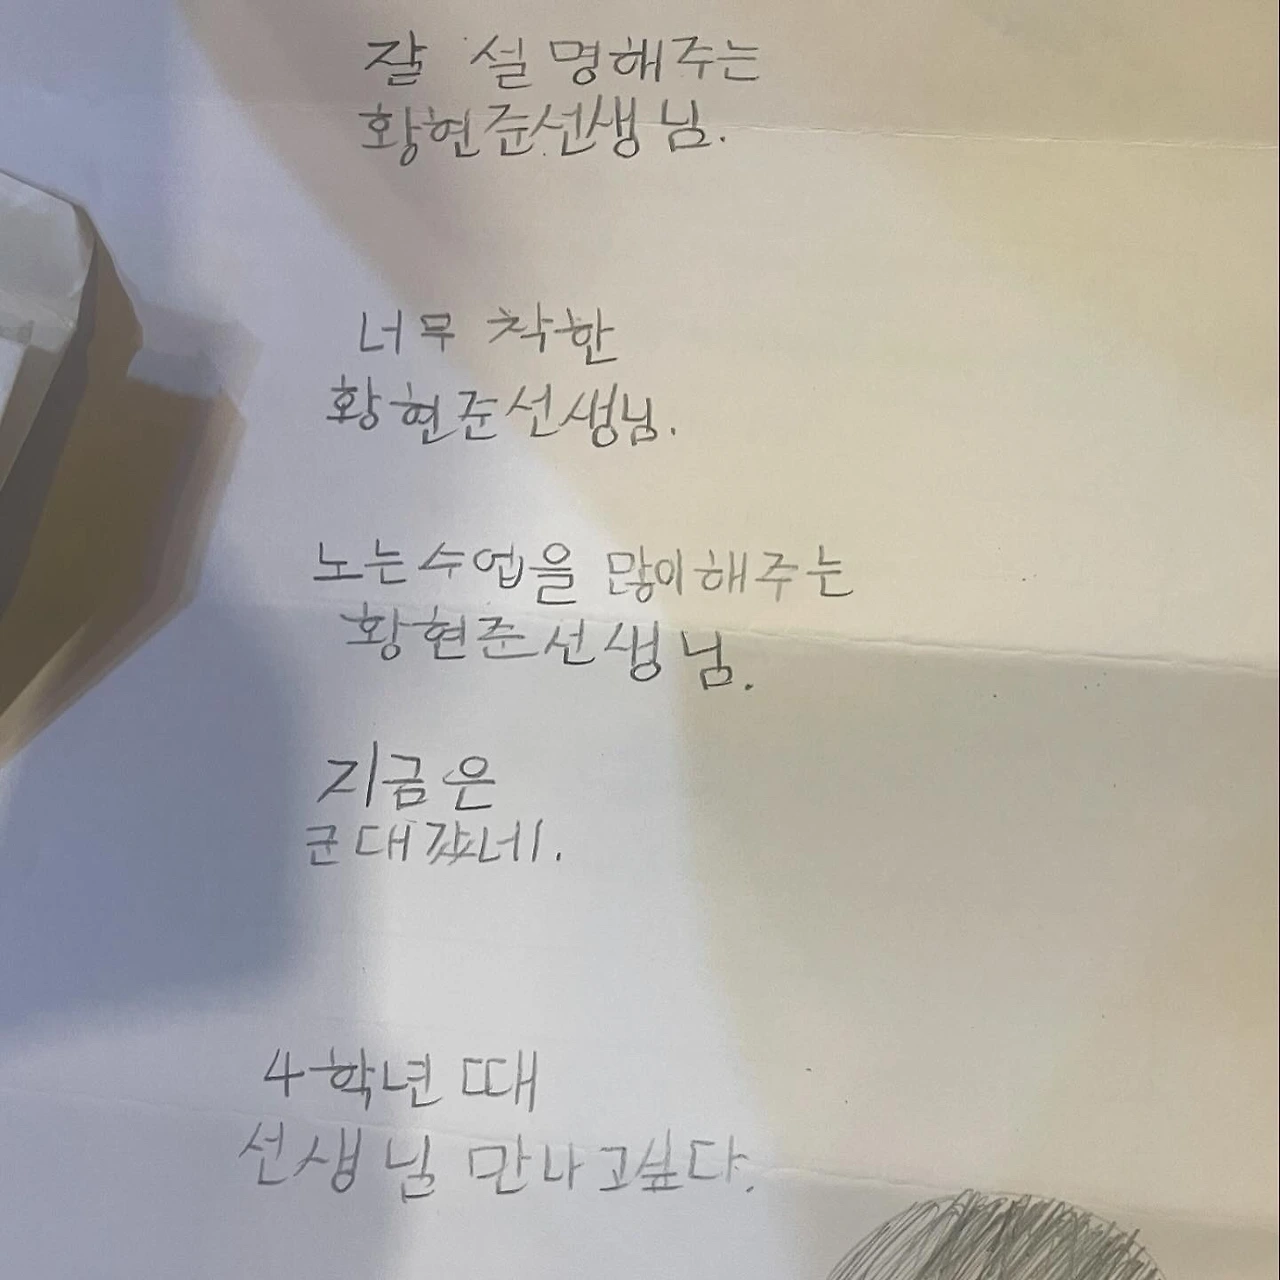 잘 설명해주는
황현준선생님.
너무 착한
황현준선생님.
노는수업을 많이해주는
황현준선생님.
지금은
군대갔네.
4학년 때
선생님 만나고싶다.